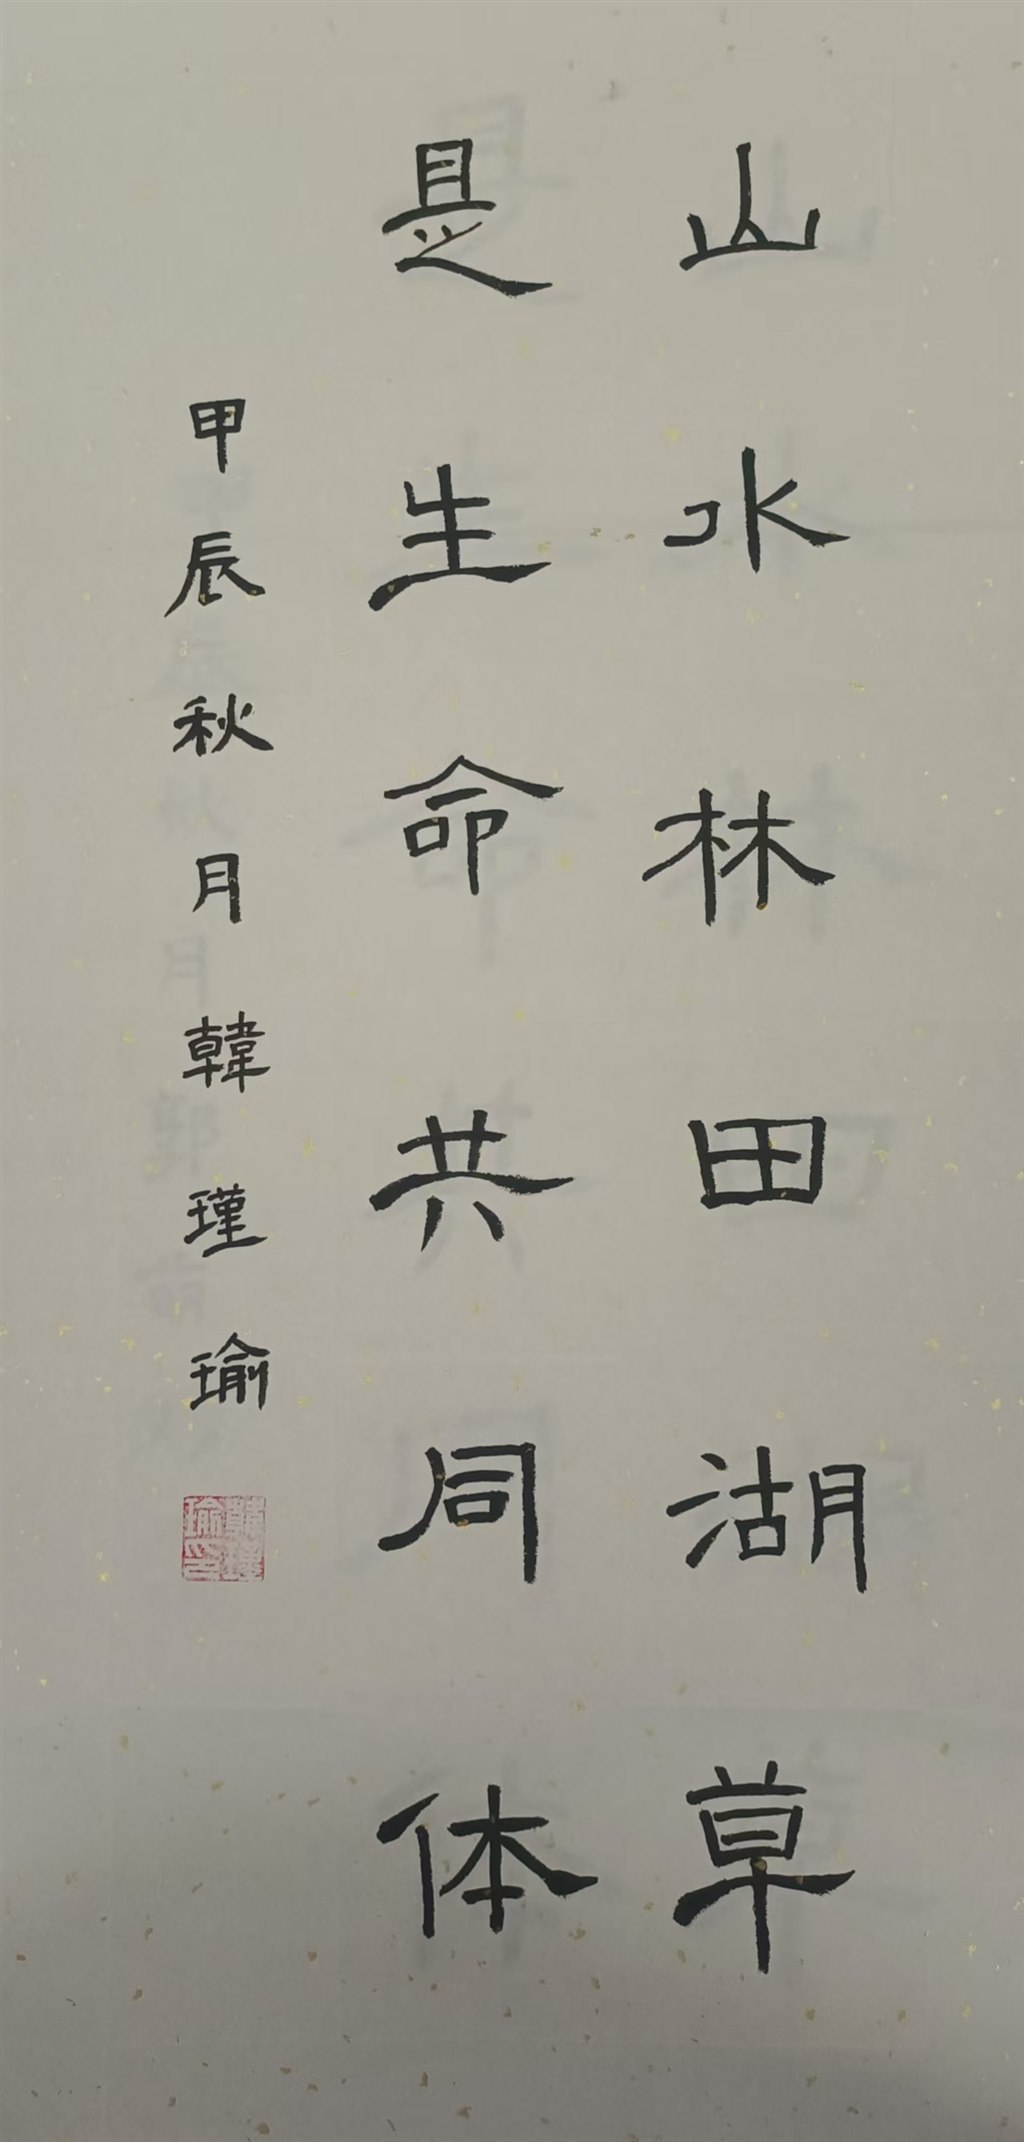 山水林田湖草
是生命共同体
甲辰秋月韓瑾瑜
韓瑾瑜印